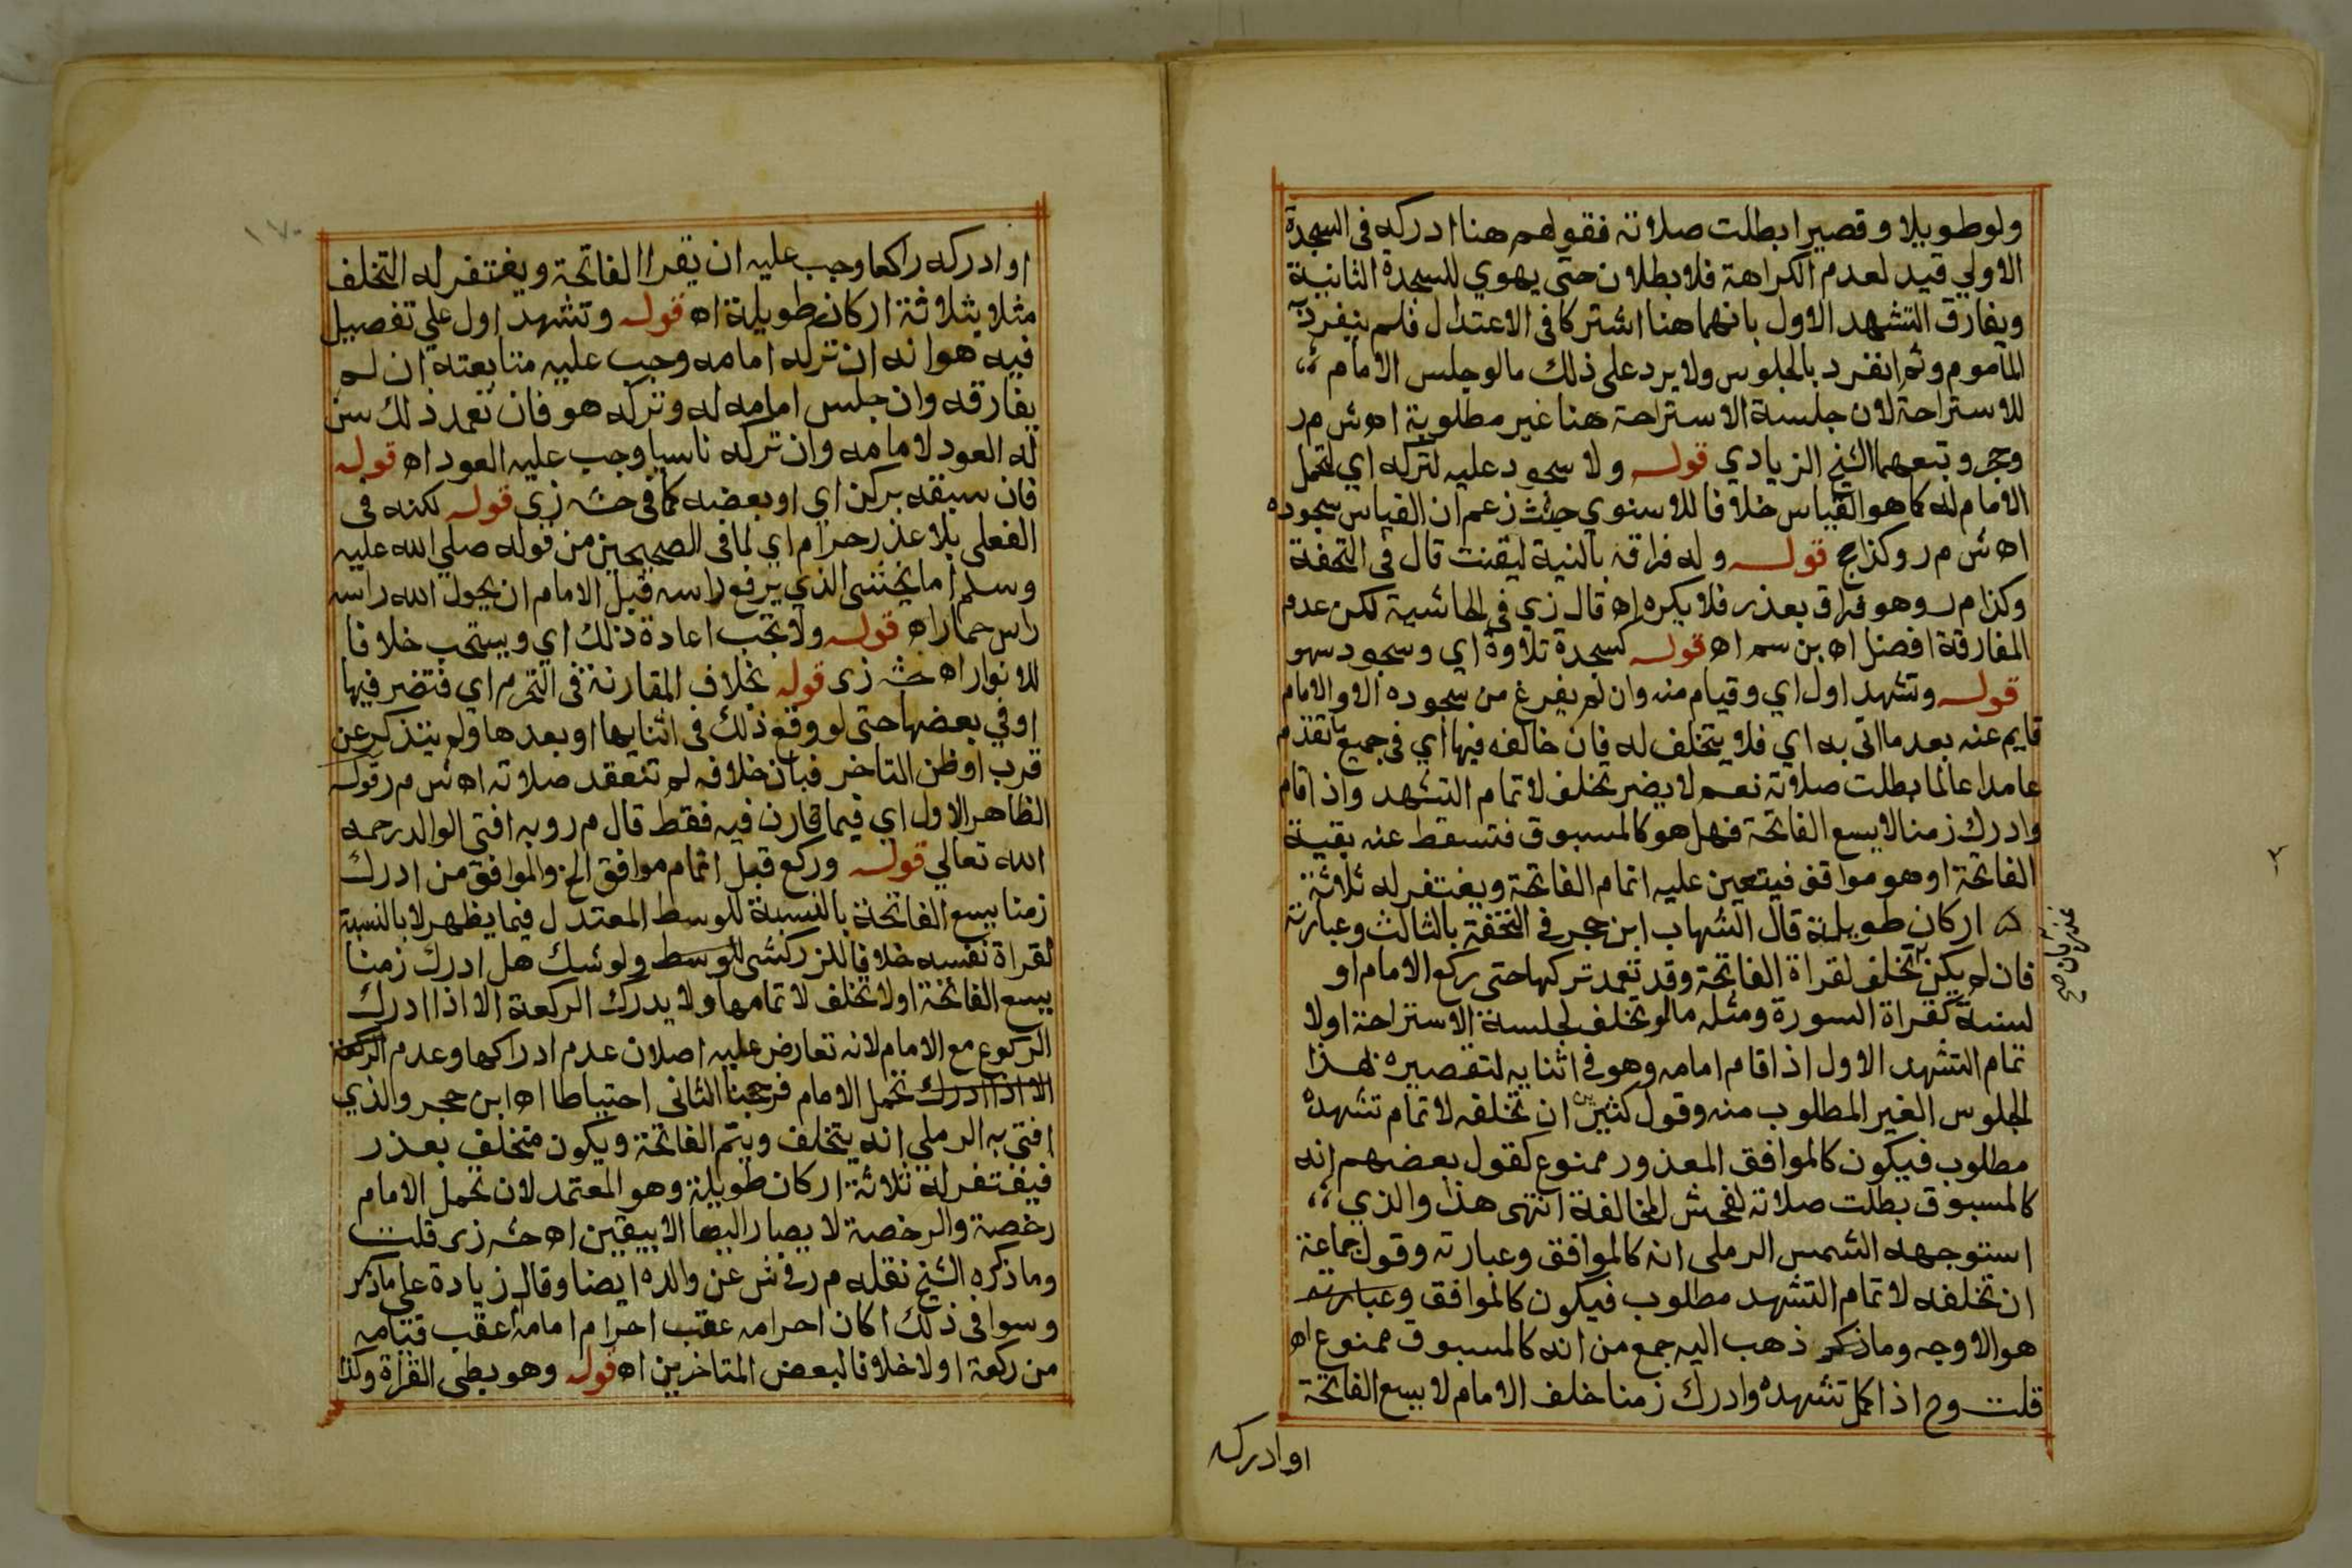 ولو طويلا وقصيرا بطلت صلاته فقولهم هنا ادركه في السجدة
الاولي قيد لعدم الكراهة فلا بطلان حتى يهوي للسجدة الثانية
ويفارق التشهد الاول بانهما هنا اشتركا في الاعتدال فلم ينفرد
المأموم وثم انفرد بالجلوس ولا يرد على ذلك مالو جلس الامام
للاستراحة لان جلسة الاستراحة هنا غير مطلوبة اه ش م ر
وحج وتبعهما الشيخ الزيادي قوله ولا سجود عليه لتركه اي لتحمل
الامام له كما هو القياس خلافا للاسنوي حيث زعم ان القياس سجوده
اه ش م ر وكذا حج قوله وله فراقه بالنية ليقنت قال في التحفة
وكذا م ر وهو فراق بعذر فلا يكره اه قال زي في الحاشية لكن عدم
المفارقة افضل اه بن سم اه قوله كسجدة تلاوة اي وسجود سهو
قوله وتشهد اول اي وقيام منه وان لم يفرغ من سجوده الا والامام
قايم عنه بعد ما اتى به اي فلا يتخلف له فان خالفه فيها اي في جميع ما تقدم
عامدا عالما بطلت صلاته نعم لا يضر تخلف لاتمام التشهد واذا قام
وادرك زمنا لا يسع الفاتحة فهل هو كالمسبوق فتسقط عنه بقية
الفاتحة او هو موافق فيتعين عليه اتمام الفاتحة ويغتفر له ثلاثة
اركان طويلة قال الشهاب ابن حجر في التحفة بالثالث وعبارته
فان لم يكن تخلف لقراة الفاتحة وقد تعمد تركها حتى ركع الامام او
لسنة كقراة السورة ومثله مالو تخلف لجلسة الاستراحة او لا
تمام التشهد الاول اذا قام امامه وهو في اثنايه لتقصيره بهذا
الجلوس الغير المطلوب منه وقول كثيرين ان تخلفه لاتمام تشهده
مطلوب فيكون كالموافق المعذور ممنوع كقول بعضهم انه
كالمسبوق بطلت صلاته لفحش المخالفة انتهى هذا والذي
استوجهه الشمس الرملي انه كالموافق وعبارته وقول جماعة
ان تخلفه لاتمام التشهد مطلوب فيكون كالموافق وعبارته
هو الاوجه وما ذكر ذهب اليه جمع من انه كالمسبوق ممنوع اه
قلت وح اذا اكمل تشهده وادرك زمنا خلف الامام لا يسع الفاتحة
او ادركه
او ادركه راكعا وجب عليه ان يقرا الفاتحة ويغتفر له التخلف
مثلا بثلاثة اركان طويلة اه قوله وتشهد اول علي تفصيل
فيه هو انه ان تركه امامه وجب عليه متابعته ان لم
يفارقه وان جلس امامه له وتركه هو فان تعمد ذلك سن
له العود لامامه وان تركه ناسيا وجب عليه العود اه قوله
فان سبقه بركن اي او بعضه كما في حشه زي قوله لكنه في
الفعلى بلا عذر حرام اي لما في الصحيحين من قوله صلي الله عليه
وسلم اما يخشى الذي يرفع راسه قبل الامام ان يحول الله راسه
راس حمار اه قوله ولا تجب اعادة ذلك اي ويستحب خلافا
للانوار اه حشه زى قوله بخلاف المقارنة في التحرم اي فتضر فيها
او في بعضها حتى لو وقع ذلك في اثنايها او بعدها ولم يتذكر عن
قرب او ظن التاخر فبان خلافه لم تنعقد صلاته اه ش م ر قوله
الظاهر الاول اي فيما قارن فيه فقط قال م ر وبه افتى الوالد رحمه
الله تعالي قوله وركع قبل اتمام موافق الخ والموافق من ادرك
زمنا يسع الفاتحة بالنسبة للوسط المعتدل فيما يظهر لا بالنسبة
لقراة نفسه خلافا للزركشى للوسط ولو شك هل ادرك زمنا
يسع الفاتحة او لا تخلف لاتمامها ولا يدرك الركعة الا اذا ادرك
الركوع مع الامام لانه تعارض عليه اصلان عدم ادراكها وعدم الركعة
الا اذا ادرك تحمل الامام فرجحنا الثانى احتياطا اه ابن حجر والذي
افتى به الرملي انه يتخلف ويتم الفاتحة ويكون متخلف بعذر
فيغتفر له ثلاثة اركان طويلة وهو المعتمد لان تحمل الامام
رخصة والرخصة لا يصار اليها الا بيقين اه حشه زى قلت
وما ذكره الشيخ نقله م ر في ش عن والده ايضا وقال زيادة على ما ذكر
وسوا في ذلك اكان احرامه عقب احرام امامه ام عقب قيامه
من ركعة او لا خلافا لبعض المتاخرين اه قوله وهو بطى القراة وكذا